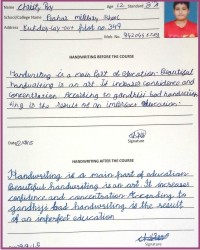 Name Age 12 Standard
School/College Name
Address plot no. 349
Mob. No.
HANDWRITING BEFORE THE COURSE
Handwriting is a main part of education. Beautiful
handwriting is an art. It increases confidence and
concentration. According to gandhiji bad handwri
ting is the result of an imperfect education.
Signature
HANDWRITING AFTER THE COURSE
Handwriting is a main part of education.
Beautiful handwriting is an art. It increases
confidence and concentration. According to
gandhiji bad handwriting is the result
of an imperfect education
Signature